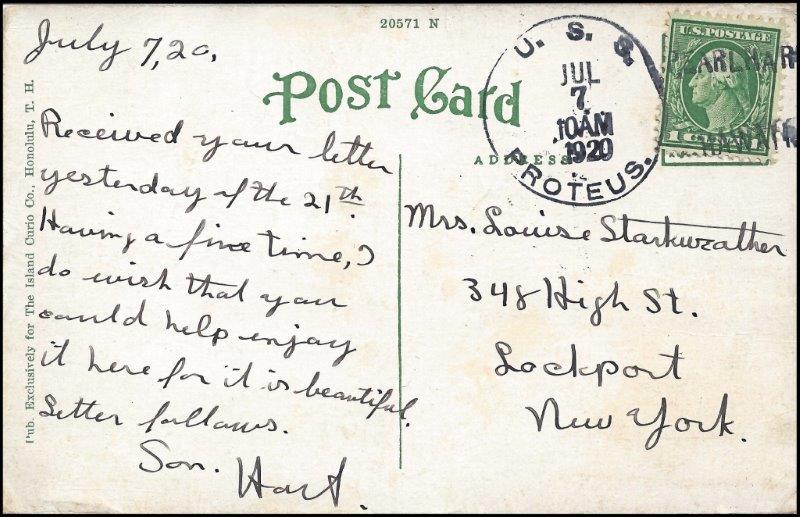 20571 N
July 7, 20,
Post Card
ADDRESS
Received your letter
yesterday of the 21th.
Having a fine time, I
do wish that you
could help enjoy
it here for it is beautiful.
Letter follows.
Son.
Hart.
Pub. Exclusively for The Island Curio Co., Honolulu, T. H.
U. S. S.
JUL
7
10AM
1920
PROTEUS.
U.S. POSTAGE
PEARL HAR
HAWAII
Mrs. Louise Starkweather
348 High St.
Lockport
New York.